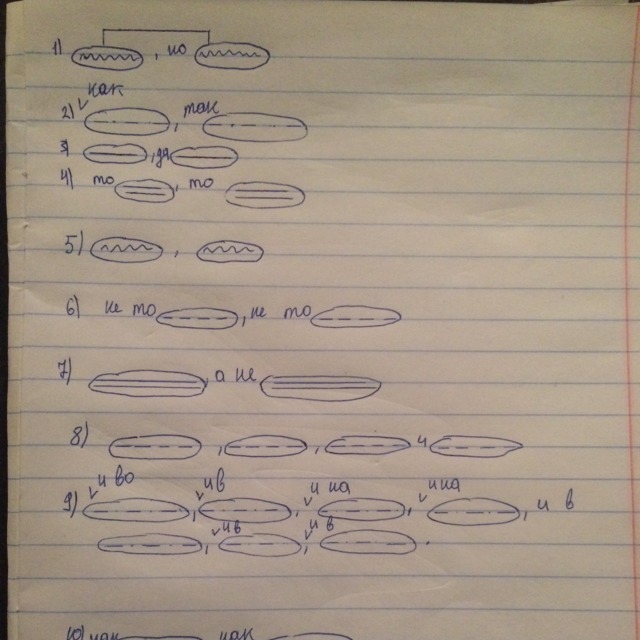 1) , но
как
2) , так
3) , да
4) то , то
5) ,
6) не то , не то
7) , а не
8) , , и
и во и в и на и на
9) , , , , и в
и в и в
, , .
10) как как